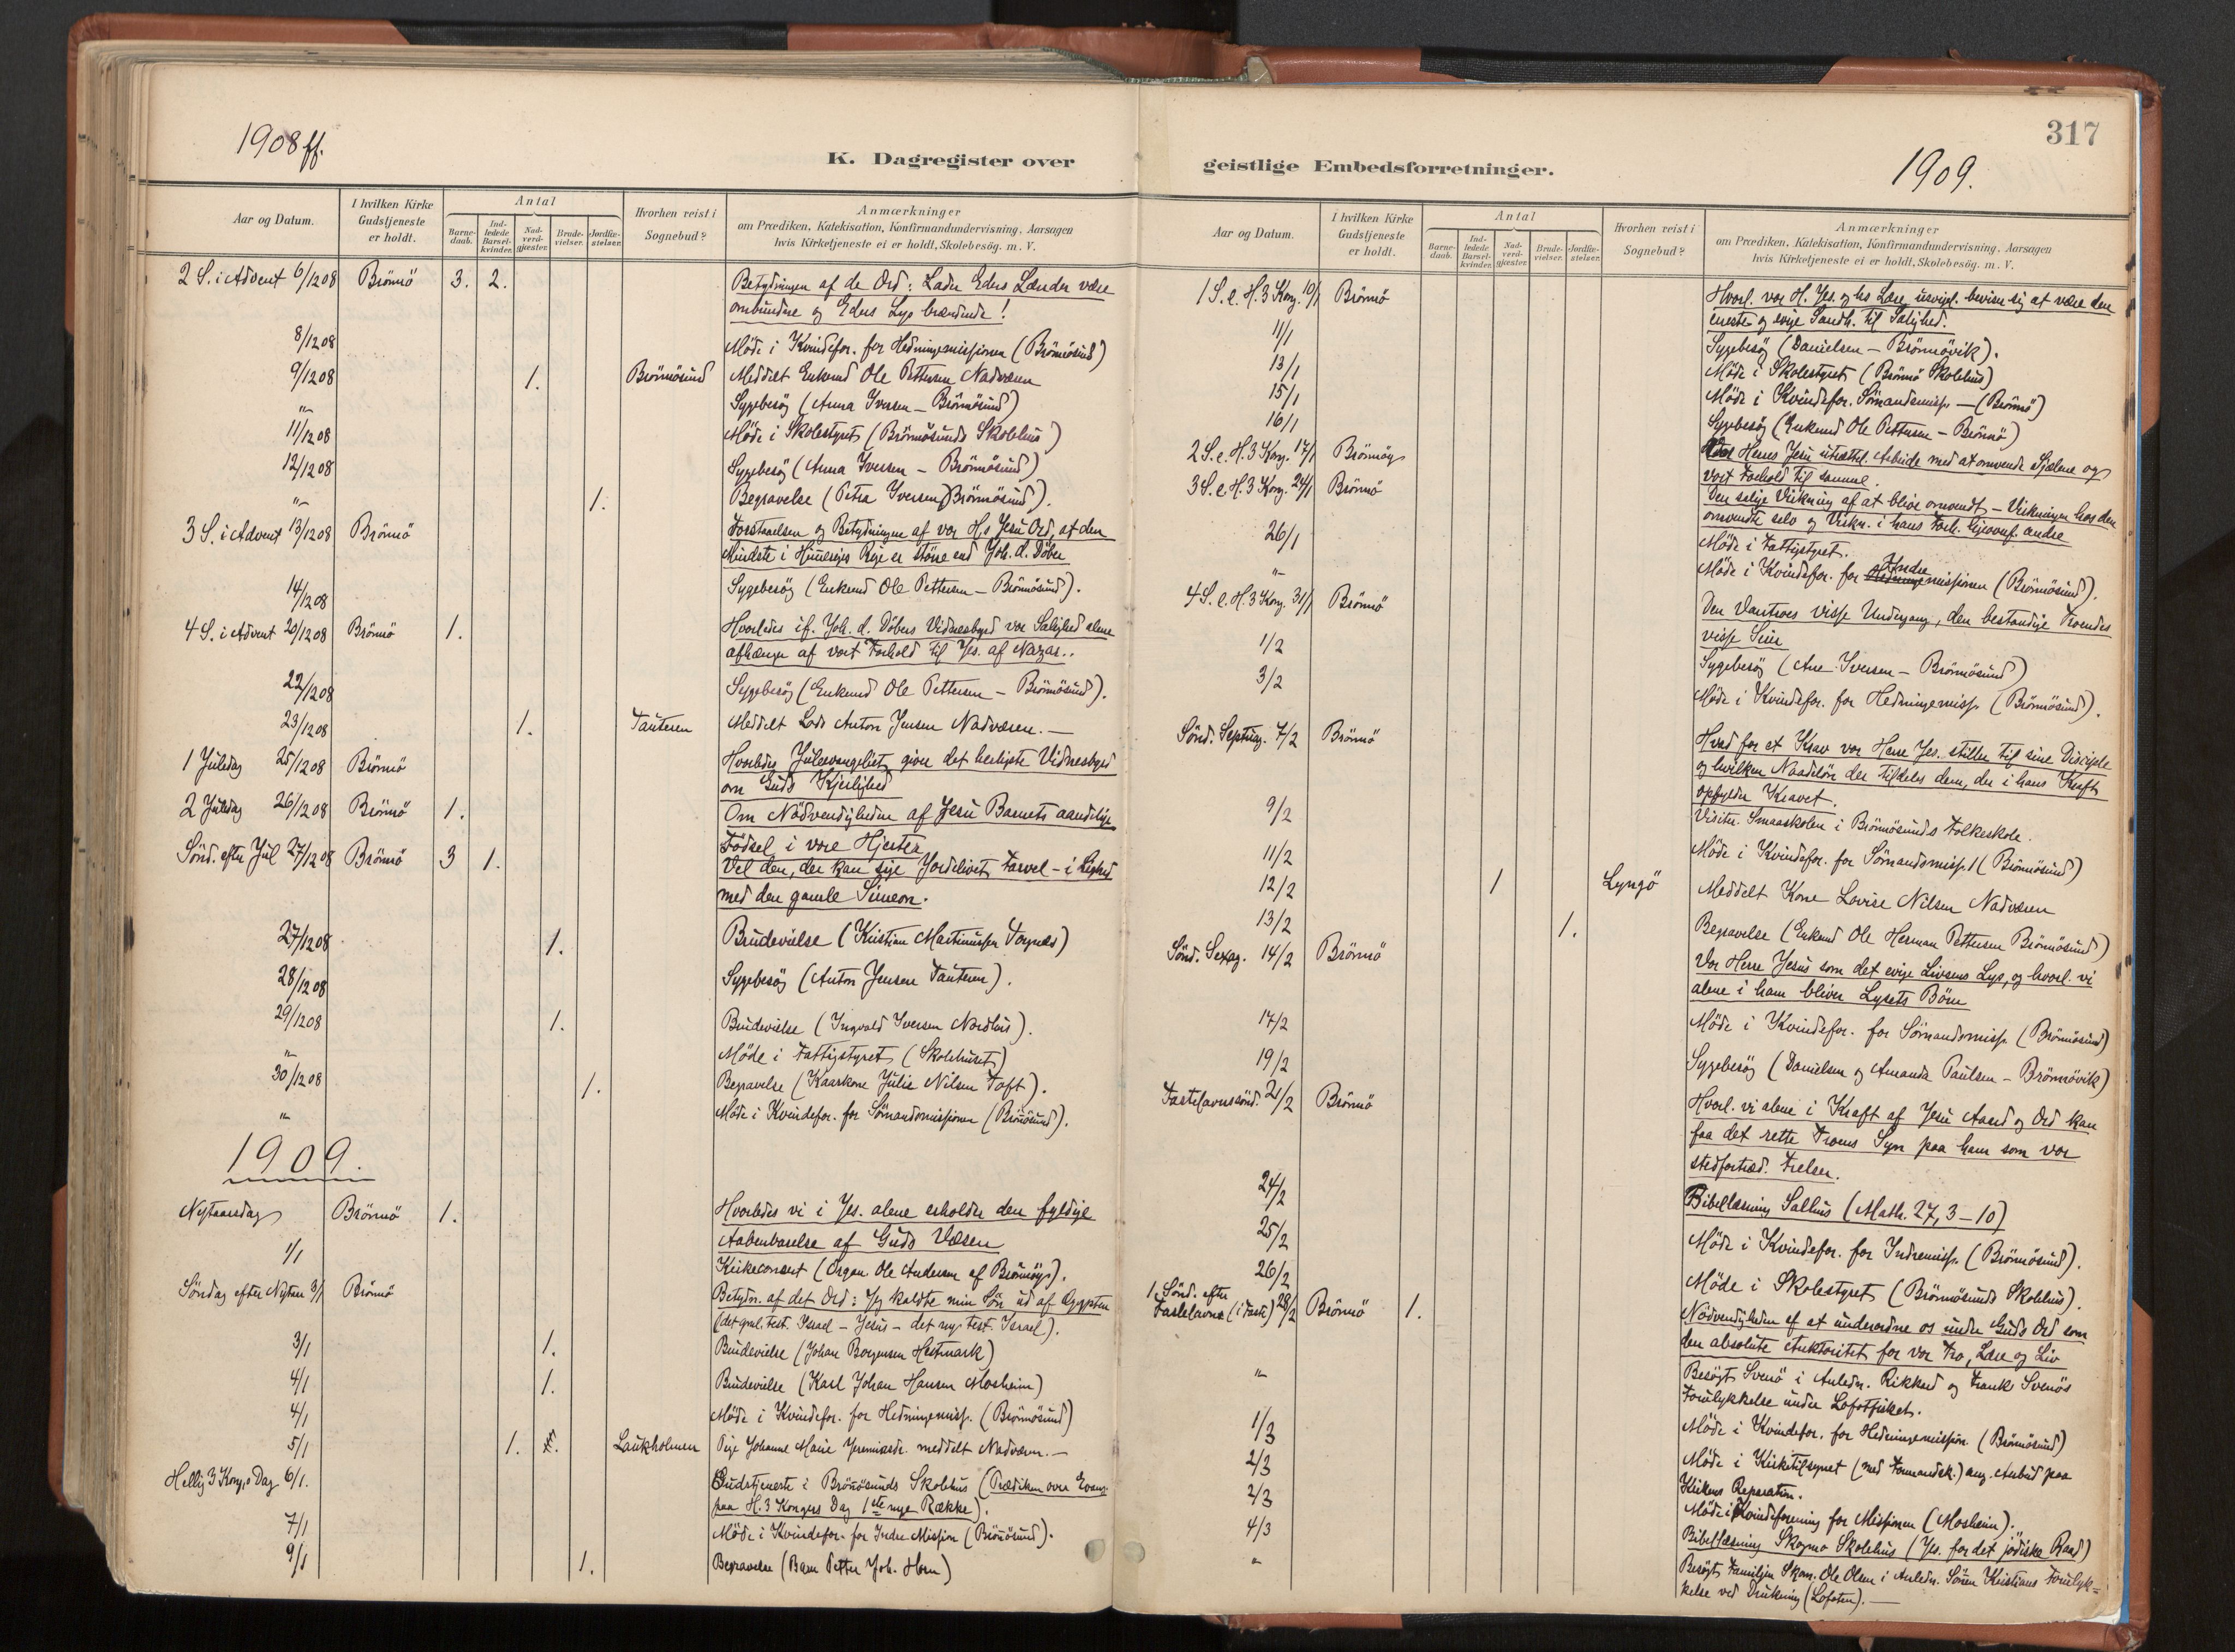 1908 ff.
K. Dagregister over
Aar og Datum.
I hvilken Kirke Gudstjeneste er holdt.
Antal
Barne-daab.
Ind-ledede Barsel-kvinder.
Nad-verd-gjæster.
Brude-vielser.
Jordfæ-stelser.
Hvorhen reist i Sognebud?
Anmærkninger
om Prædiken, Katekisation, Konfirmandundervisning, Aarsagen
hvis Kirketjeneste ei er holdt, Skolebesög. m. V.
2 S. i Advent 6/12 08 Brönnö 3. 2. Betydningen af de Ord: Lader Eders Lænder være
ombundne og Eders Lys brændende!
8/12 08 Möde i Kvindefor. for Hedningemissionen (Brönnösund)
9/12 08 1. Brönnösund Meddelt Enkemd Ole Pettersen Nadveren
"– Sygebesög (Anna Iversen – Brönnösund)
11/12 08 Möde i Skolestyret (Brönnösunds Skolehus)
12/12 08 Sygebesög (Anna Iversen – Brönnösund)
"– 1. Begravelse (Petra Iversen Brönnösund).
3 S. i Advent 13/12 08 Brönnö Forstaaelsen og Betydningen af vor H,s Jesu Ord, at den
Mindste i Himeriges Rige er större end Joh. d. Döber
14/12 08 Sygebesög (Enkemd Ole Pettersen – Brönnösund).
4 S. i Advent 20/12 08 Brönnö 1. Hvorledes if. Joh. d. Döbers Vidnesbyrd vor Salighed alene
afhænger af vort Forhold til Jes. af Nazar..
22/12 08 Sygebesög (Enkemd Ole Pettersen – Brönnösund).
23/12 08 1. Tauteren Meddelt Lods Anton Jensen Nadveren. –
1 Juledag 25/12 08 Brönnö Hvorledes Juleevangeliet giver det herligste Vidnesbyrd
om Guds Kjerlighed
2 Juledag 26/12 08 Brönnö 1. Om Nödvendigheden af Jesu Barnets aandelige
Födsel i vore Hjerter
Sönd. efter Jul 27/12 08 Brönnö 3 1. Vel den, der kan sige Jordelivet Farvel – i Lighed
med den gamle Simeon.
27/12 08 1. Brudevielse (Kristian Martinussen Torgnes)
28/12 08 Sygebesög (Anton Jensen Tauteren).
29/12 08 1. Brudevielse (Ingvald Iversen Nordhus).
"– Möde i Fattigstyret (Skolehuset)
30/12 08 1. Begravelse (Kaarkone Julie Nilsen Toft).
"– Möde i Kvindefor. for Sömandsmissionen (Brönösund).
1909.
Nytaarsdag Brönnö 1. Hvorledes vi i Jes. alene erholder den fyldige
Aabenbarelse af Guds Væsen
1/1 Kirkeconcert (Organ. Ole Andersen af Brönnöys).
Söndag efter Nytaar 3/1 Brönnö Betydn. af det Ord: Jeg kaldte min Sön ud af Ægypten
(det gml. test. Israel – Jesus – det nye Test. Israel).
3/1 1. Brudevielse (Johan Borgersen Hestmark)
4/1 1. Brudevielse (Karl Johan Hansen Mosheim)
4/1 Möde i Kvindefor. for Hedningemiss. (Brönnösund)
5/1 1. Laukholmen Pige Johanne Marie Jeremiasdr. meddelt Nadveren. –
Hellig 3 Kong,s Dag 6/1. Gudstjeneste i Brönösunds Skolehus (Prædiken over Evang.
paa H. 3 Kongers Dag 1ste nye Række).
7/1 Möde i Kvindefor. for Indre Mission (Brönösund).
9/1 1. Begravelse (Barn Petter Joh. Horn)
317
geistlige Embedsforretninger.
1909.
Aar og Datum.
I hvilken Kirke Gudstjeneste er holdt.
Antal
Barne-daab.
Ind-ledede Barsel-kvinder.
Nad-verd-gjæster.
Brude-vielser.
Jordfæ-stelser.
Hvorhen reist i Sognebud?
Anmærkninger
om Prædiken, Katekisation, Konfirmandundervisning, Aarsagen
hvis Kirketjeneste ei er holdt, Skolebesög. m. V.
1 S. e. H. 3 Kong. 10/1 Brönnö Hvorl. vor H. Jes. og hs Lære usvigel. beviser sig at være den
eneste og evige Sandh. til Salighed.
11/1 Sygebesög (Danielsen – Brönnövik).
13/1 Möde i Skolestyret (Brönnö Skolehus)
15/1 Möde i Kvindefor. Sömandsmiss. – (Brönnö)
16/1 Sygebesög (Enkemd Ole Pettersen – Brönnö)
2 S. e. H. 3 Kong. 17/1 Brönnöy Herres Jesu utrættel. Arbeide med at omvende Sjælene og
vort Forhold til samme.
3 S. e. H. 3 Kong. 24/1 Brönnö Den salige Virkning af at blive omvendt – Virkningen hos den
omvendte selv og Virkn. i hans Forh. ligeoverf. andre
26/1 Möde i Fattigstyret.
"– Möde i Kvindefor. for Indre missionen (Brönnösund).
4 S. e. H. 3 Kong. 31/1 Brönnö Den Vantroes visse Undergang, den bestandige Troendes
visse Seier
1/2 Sygebesög (Ane Iversen – Brönnösund)
3/2 Möde i Kvindefor. for Hedningemiss. (Brönnösund).
Sönd. Septuag. 7/2 Brönnö Hvad for et Krav vor Herre Jes. stiller til sine Disciple
og hvilken Naadelön der tildeles dem, der i hans Kraft
opfylder Kravet.
9/2 Visiter. Smaaskolen i Brönnösunds Folkeskole.
11/2 Möde i Kvindefor. for Sömandsmiss. (Brönnösund)
12/2 1 Lyngö Meddelt Kone Lovise Nilsen Nadveren
13/2 1. Begravelse (Enkemd Ole Herman Pettersen Brönnösund)
Sönd. Sexag. 14/2 Brönnö Vor Herre Jesus som det evige Livsens Lys, og hvorl. vi
alene i ham bliver Lysets Börn
17/2 Möde i Kvindefor. for Sömandsmiss. (Brönnösund)
19/2 Sygebesög (Danielsen og Amanda Paulsen – Brönnövik)
Fastelavnssönd. 21/2 Brönnö Hvorl. vi alene i Kraft af Jesu Aand og Ord kan
faa det rette Troens Syn paa ham som vor
stedfortræd. Frelser.
24/2 Bibellæsning Salhus (Math. 27, 3–10)
25/2 Möde i Kvindefor. for Indremiss. (Brönnösund).
26/2 Möde i Skolestyret (Brönnösunds Skolehus).
1. Sönd. efter
Fastelavn (i Faste) 28/2 Brönnö 1. Nödvendigheden af at underordne os under Guds Ord som
den absolute Auktoritet for vor Tro, Lære og Liv
"– Besögt Svenö i Anledn. Rikkard og Frank Svenös
Forulykkelse under Lofotfisket.
1/3 Möde i Kvindefor. for Hedningemission (Brönnösund)
2/3 Möde i Kirketilsynet (med Formandsk.) ang. Anbud paa
Kirkens Reparation.
2/3 Möde i Kvindeforening for Missionen (Mosheim).
4/3 Bibellæsning Skogmo Skolehus (Jes. for det jödiske Raad)
"– Besögt Familjen Skom. Ole Olsen i Anledn. Sönen Kristians Forulyk=
kelse ved Drukning (Lofoten). –